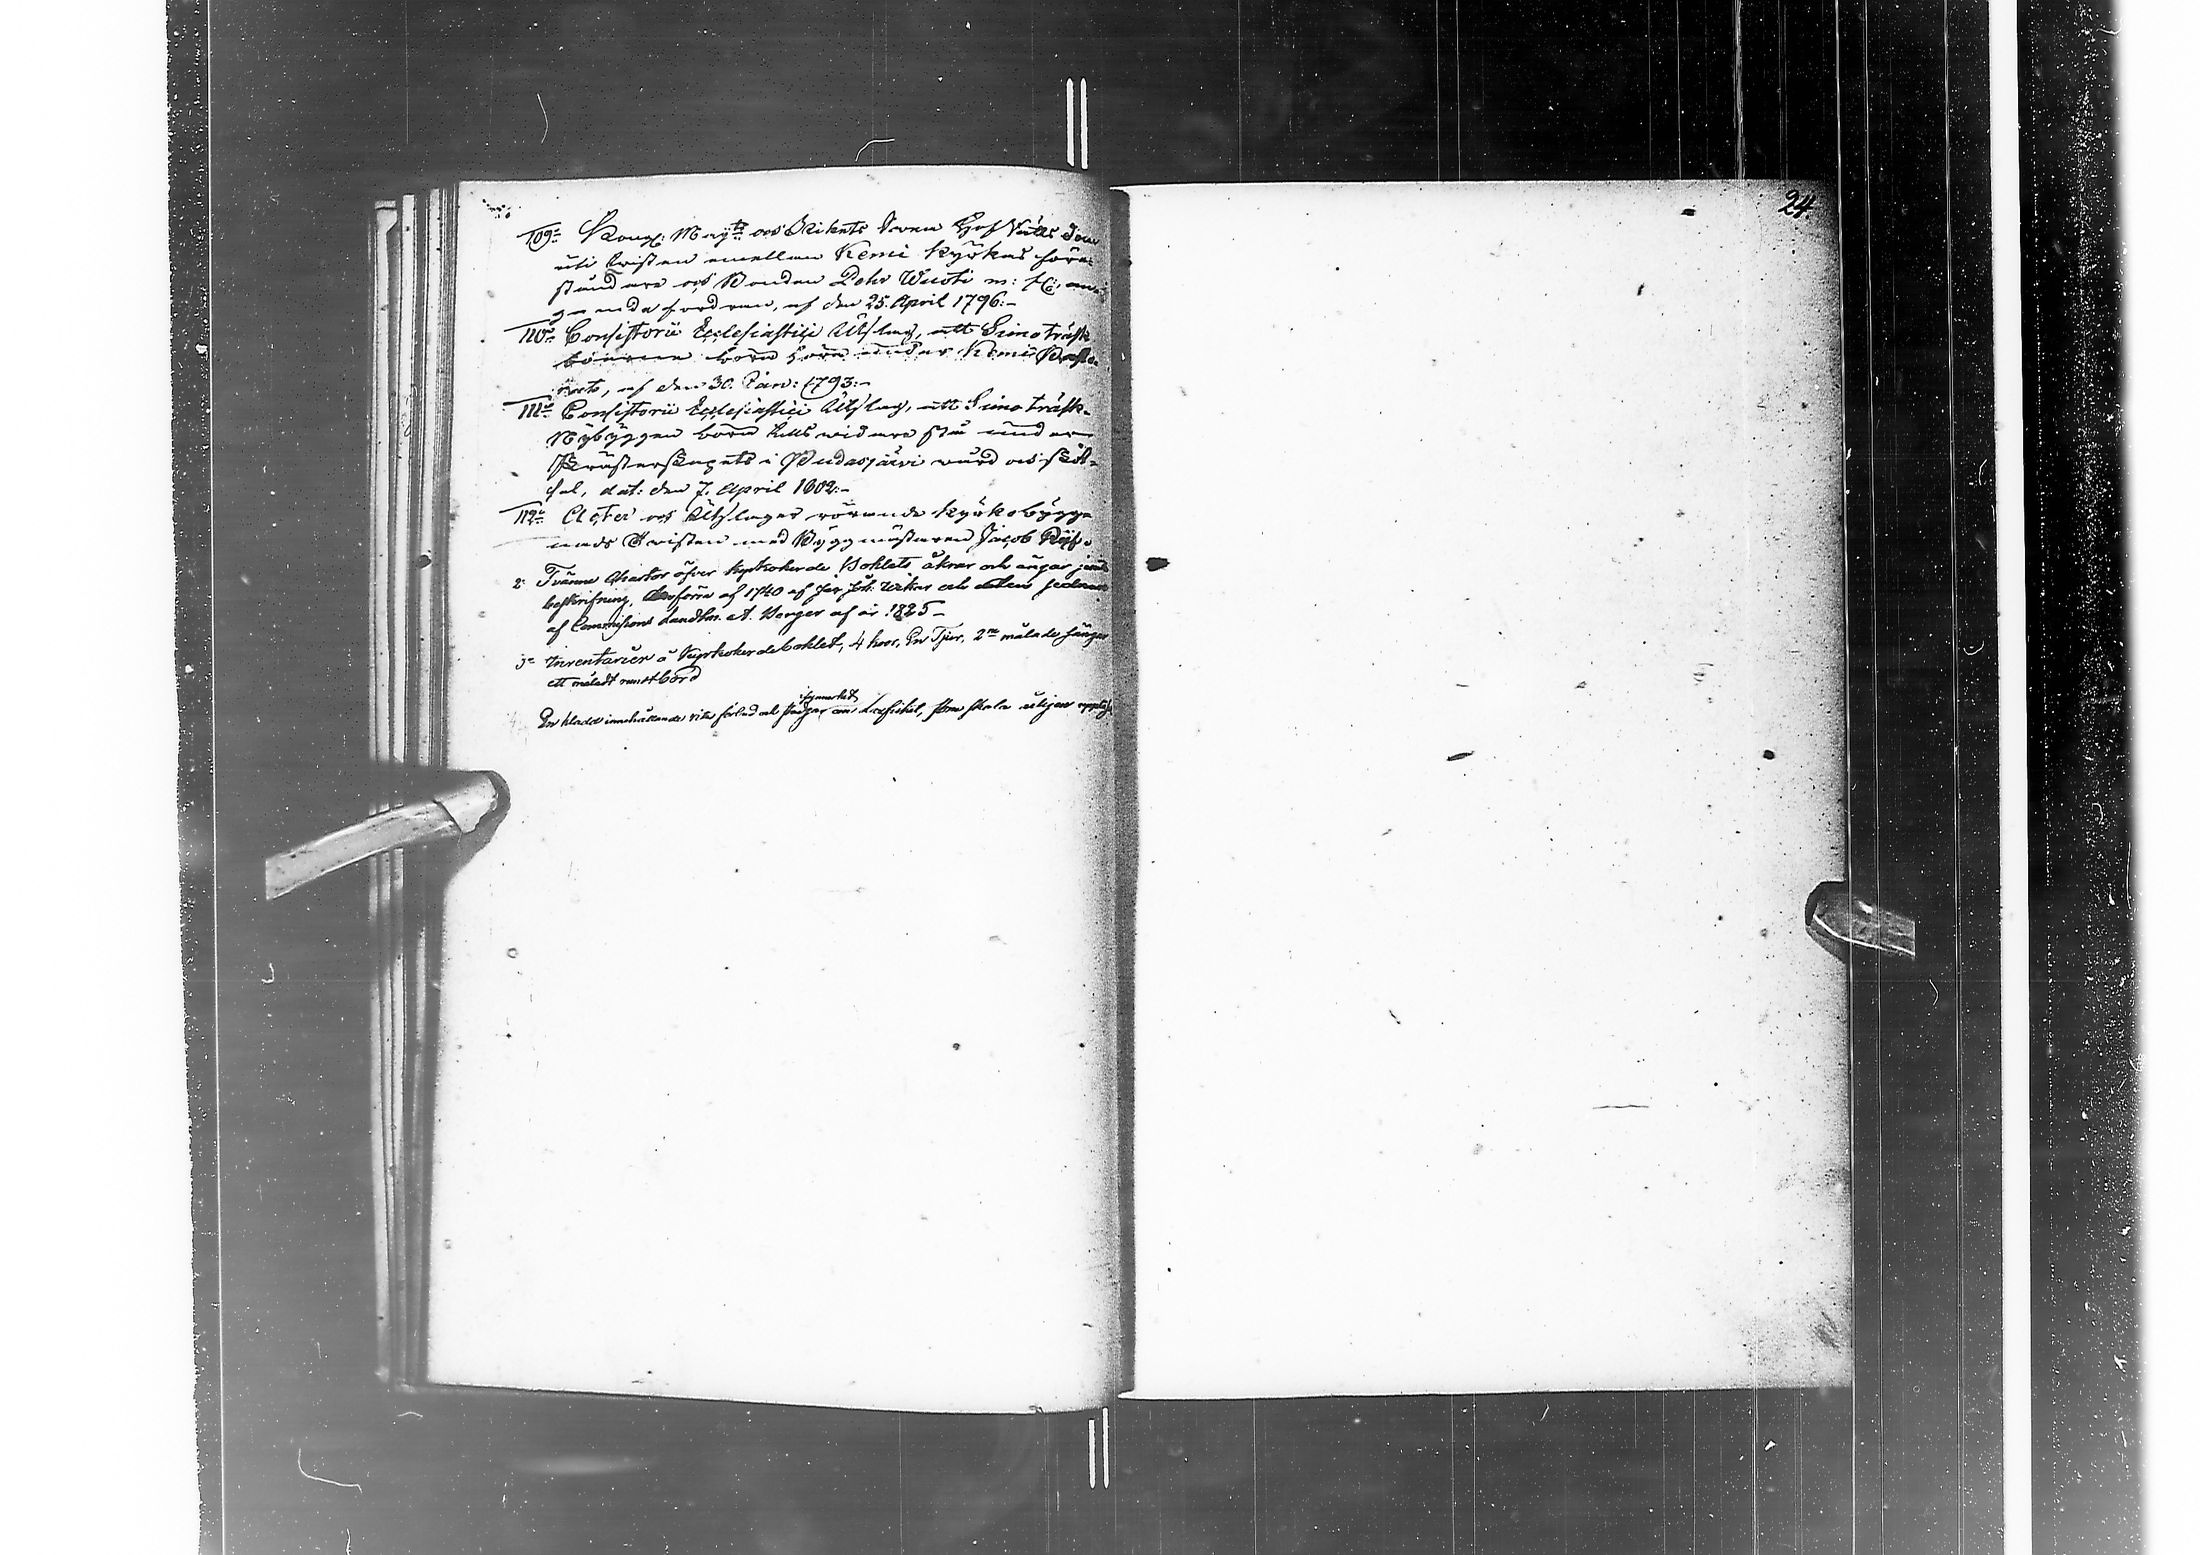 24
109:o Kongl: May:ts och Rikets Swea Hof Rätts Dom
uti twisten emellan Kemi Kyrkas före-
ståndare och Bonden Pehr Wuoti m: fl:, an-
gående fordran, af den 25. April 1796:-
110:o Consistorii Ecclesiastici Utslag, att Simo träsk
boerne böra höra under Kemi Pasto-
ratet, af den 30. Jan: 1793:-
111:o Consistorii Ecclesiastici Utslag, att Simo träsk-
Nybyggen böra tills widare stå under
Prästerskapets i Pudasjärvi wård och sköt-
sel, dat: den 7. April 1802:-
112:o Acter och Utslager rörande Kyrkobygg-
nads Twisten med Byggmästaren Jacob Rijf.
2:o Tvänne Chartor öfver Kyrkoherde Bohlets åkrar och ängar jemte
beskrifning, förra af 1740 af och den sednare
af Commissions Landtm. A. Berger af år 1825-
3:o Inventarier å Kyrkoherdebohlet, 4 koor, En Tjur, 2:ne målade sängar
ett måladt runt bord
En kladd innehållande